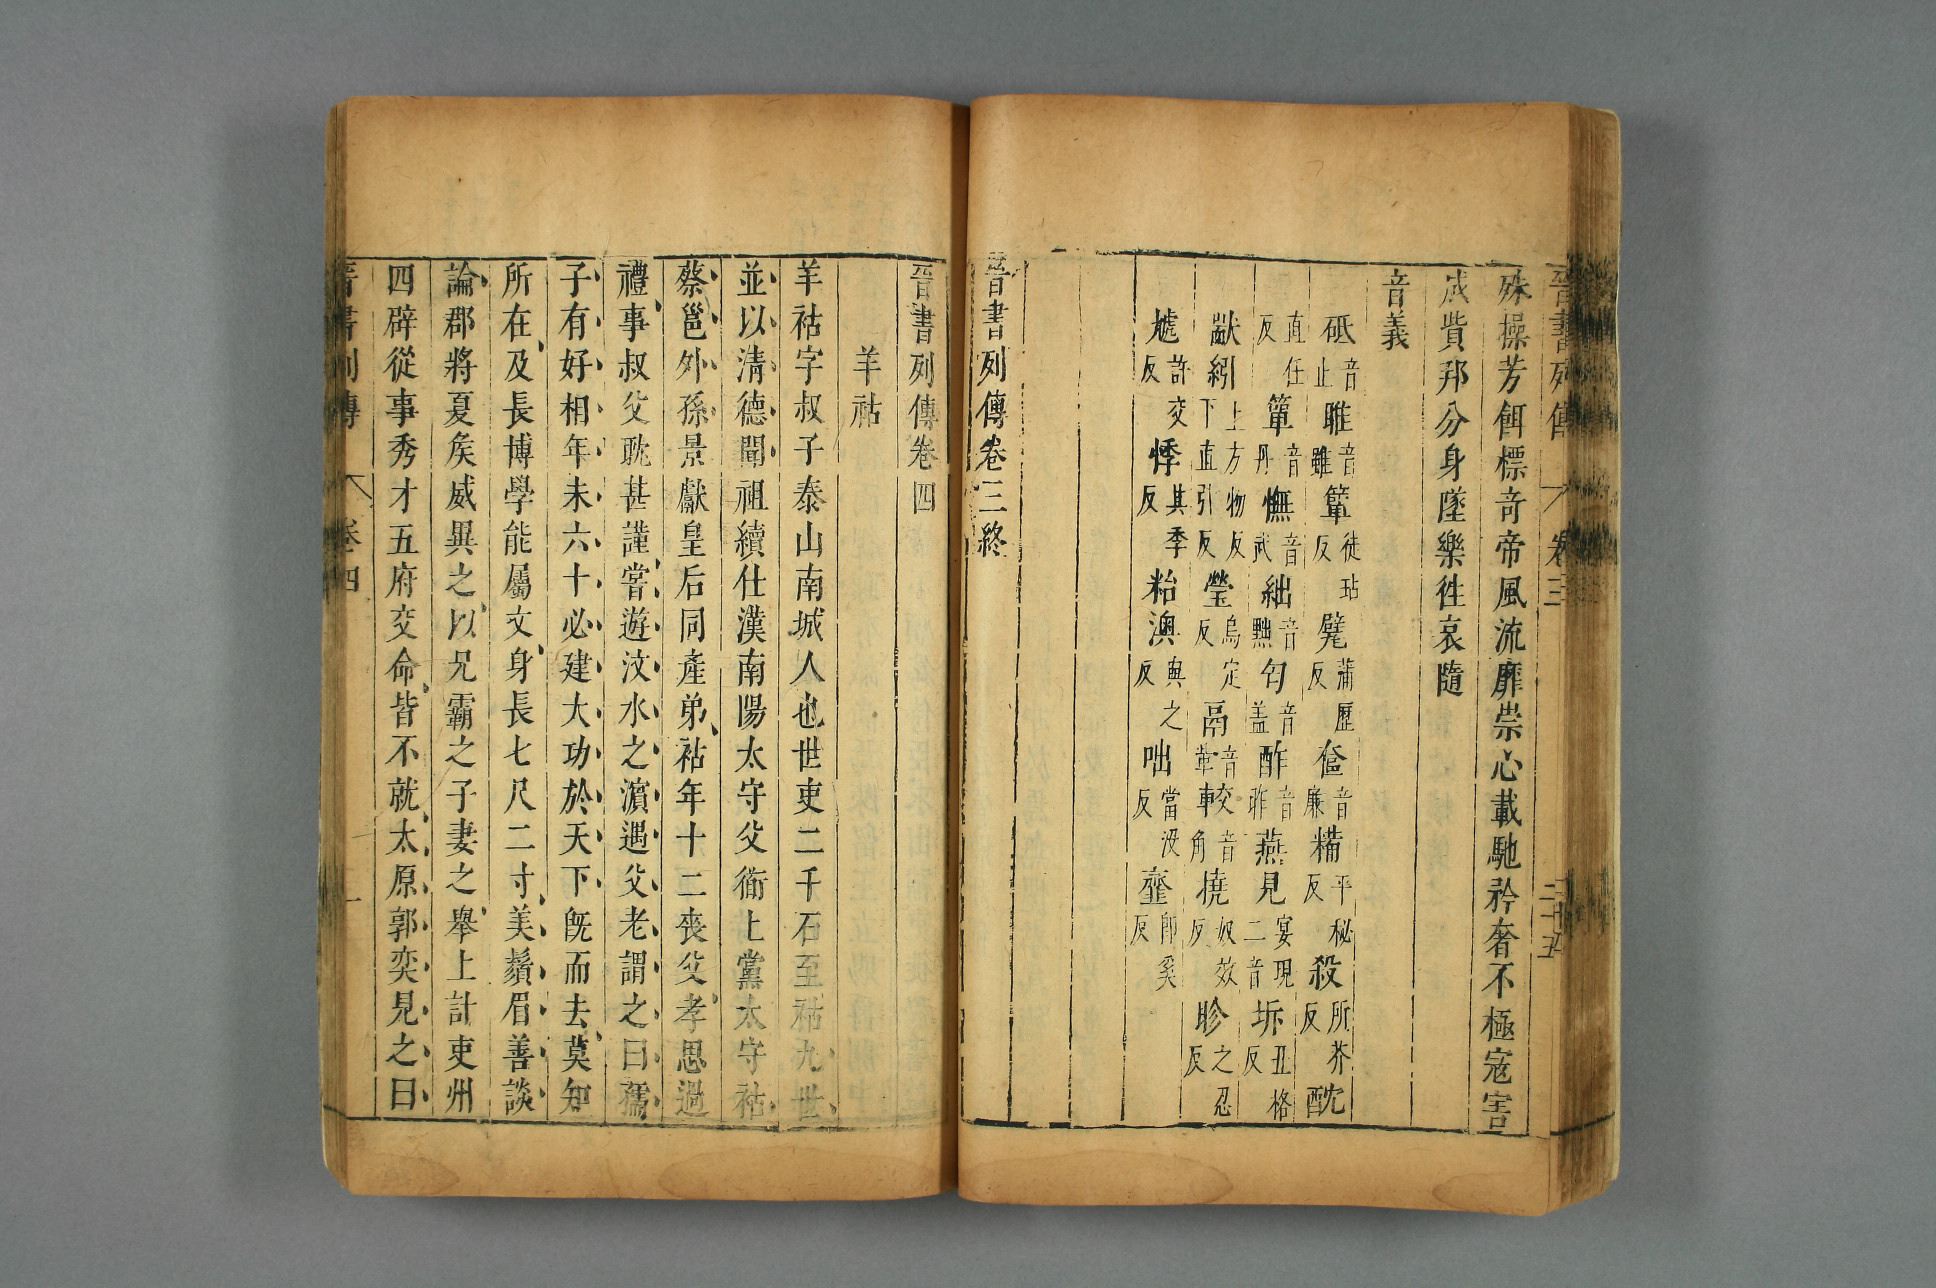 晉書列傳 卷三 二十五
殊操芳餌標奇帝風流靡崇心載馳矜奢不極寇害
成貲邦分身墜樂徃哀隨
音義
砥音止睢音雖簟徒玷反甓蒲歷反奩音廉糒平秘反殺所芥反酖
直任反簞音丹憮音武絀音黜匄音盖酢音昨燕見宴現二音坼丑格反
黻紖上方物反下直引反瑩烏定反鬲音革較音角橈奴效反聄之忍反
虓許交反悸其季反粭澳與之反咄當沒反虀即奚反
晉書列傳卷三終
晉書列傳卷四
羊祜
羊祜字叔子泰山南城人也世吏二千石至祜九世
並以清德聞祖續仕漢南陽太守父衜上黨太守祜
蔡邕外孫景獻皇后同產弟祜年十二喪父孝思過
禮事叔父耽甚謹嘗遊汶水之濱遇父老謂之曰孺
子有好相年未六十必建大功於天下既而去莫知
所在及長博學能屬文身長七尺二寸美鬚眉善談
論郡將夏矦威異之以兄霸之子妻之舉上計吏州
四辟從事秀才五府交命皆不就太原郭奕見之曰
晉書列傳 卷四 一